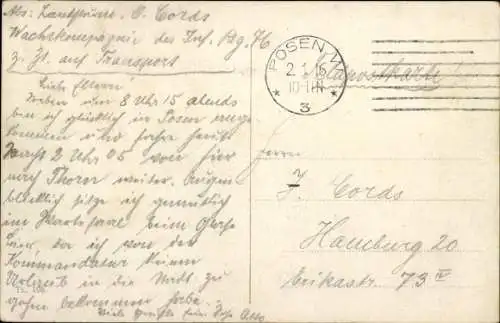 Abs: Landsturm. O. Cords
Wachkompagnie des Inf. Rg. 76
z. Zt. auf Transport
Liebe Eltern!
Soeben um 8 Uhr 15 abends
bin ich glücklich in Posen ange
kommen und fahre heute
Nacht 2 Uhr 05 von hier
nach Thorn weiter. Augen
blicklich sitze ich gemütlich
im Wartesaal beim Glase
Bier, da ich von der
Kommandatur keinen
Urlaub in die Stadt zu
gehen bekommen habe.
Viele Grüße Euer Sohn Otto
TL 106
POSEN W
2.1.15
10-11N
* 3 *
Feldpostkarte!
Herrn
J. Cords
Hamburg 20
Erikastr. 73 IV